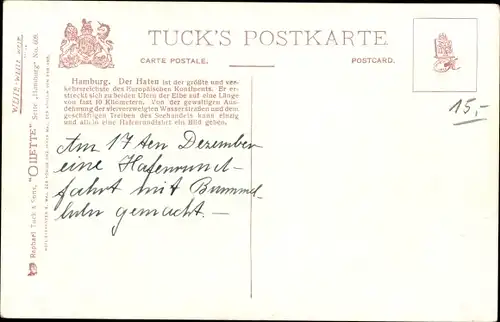 TUCK'S POSTKARTE
CARTE POSTALE.
POSTCARD.
Hamburg. Der Hafen ist der größte und ver-
kehrsreichste des Europäischen Kontinents. Er er-
streckt sich zu beiden Ufern der Elbe auf eine Länge
von fast 10 Kilometern. Von der gewaltigen Aus-
dehnung der vielverzweigten Wasserstraßen und dem
geschäftigen Treiben des Seehandels kann einzig
und allein eine Hafenrundfahrt ein Bild geben.
15,-
Am 17ten Dezember
eine Hafenrund-
fahrt mit Bummel
gemacht. —
Raphael Tuck & Sons, "OILETTE" Serie "Hamburg" No. 609.